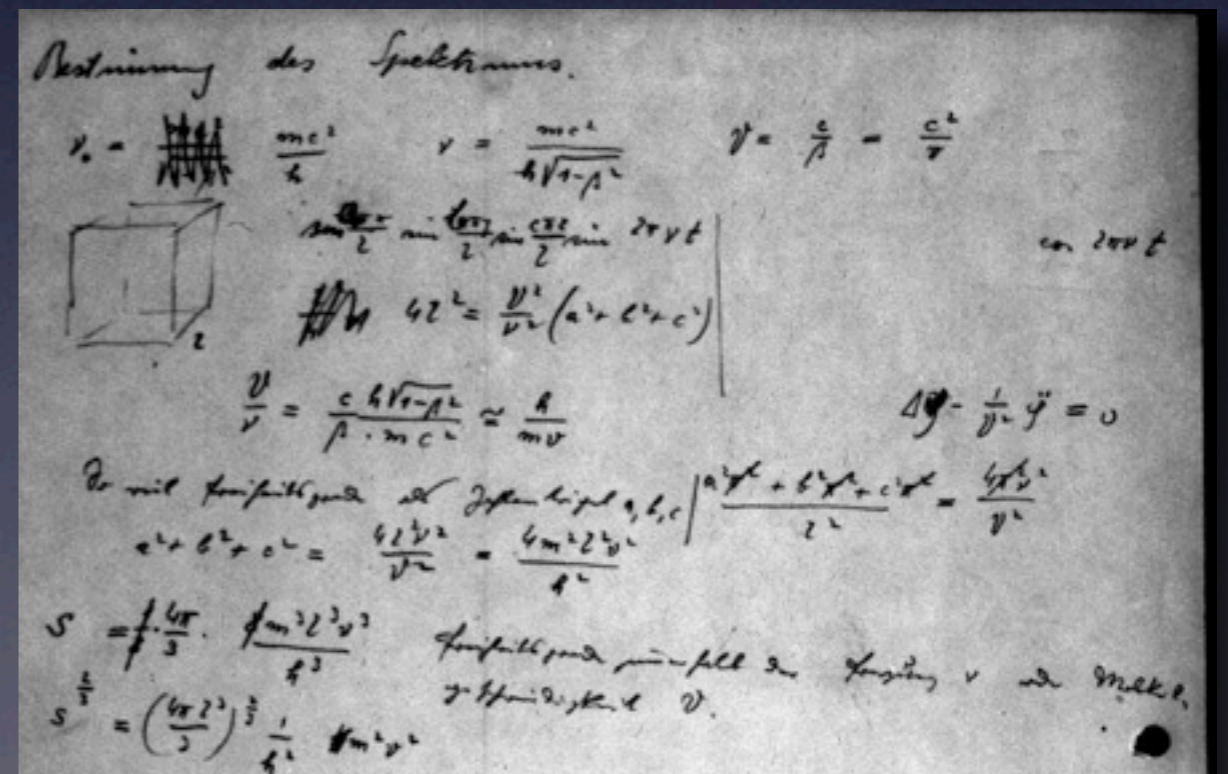 Bestimmung des Spektrums.
ν₀ = mc²/h ν = mc²/(h√(1-β²)) V = c/β = c²/v
sin aπx/l sin bπy/l sin cπz/l sin 2πνt cos 2πνt
l
4l² = V²/ν² (a² + b² + c²)
V/ν = c h√(1-β²)/(β · mc²) ≃ h/(mv) Δφ - 1/V² φ̈ = 0
So viel Freiheitsgrade als Zahlentripel a, b, c | (a²π² + b²π² + c²π²)/l² = 4π²ν²/V²
a² + b² + c² = 4l²ν²/V² = 4m²l²v²/h²
S = 4π/3 · m³l³v³/h³ Freiheitsgrade der ν oder Molek.
S^(2/3) = (4πl³/3)^(2/3) 1/h² m²v² geschwindigkeit v.